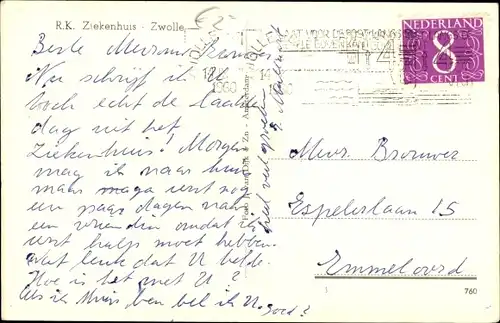 R.K. Ziekenhuis - Zwolle
€ 2
NEDERLAND
8
CENT
1960
Beste Mevrouw
Nu schrijf ik U
toch echt de laatste
dag uit het
Ziekenhuis! Morgen
mag ik naar huis
maar eerst nog
een paar dagen naar
een vriendin omdat ik
eerst hulp moet hebben.
Wat leuk dat U belde.
Hoe is het met U?
Als ik thuis ben bel ik U. Goed?
heel veel groeten
Mevr. Brouwer
Espelerlaan 15
Emmeloord
760